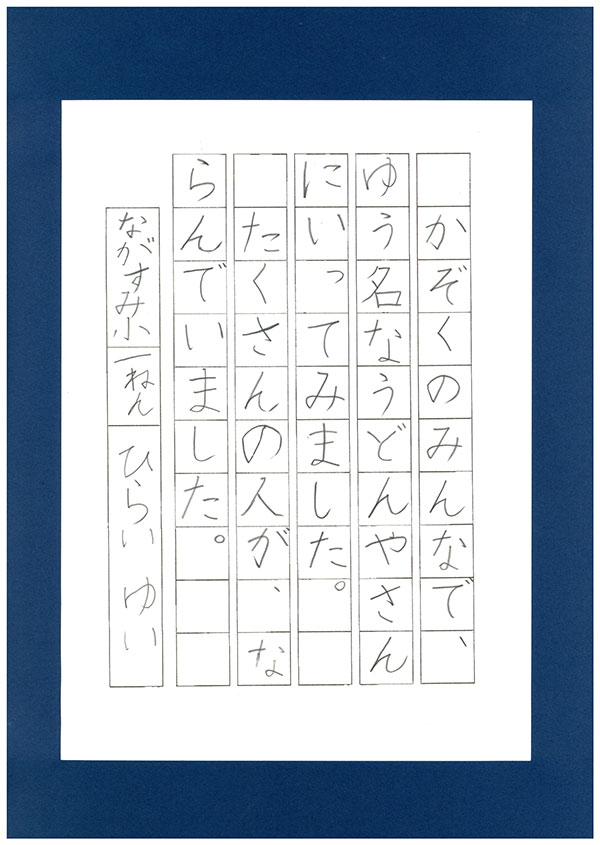 かぞくのみんなで、
ゆう名なうどんやさん
にいってみました。
たくさんの人が、な
らんでいました。
ながすみ小 一ねん ひらい ゆい